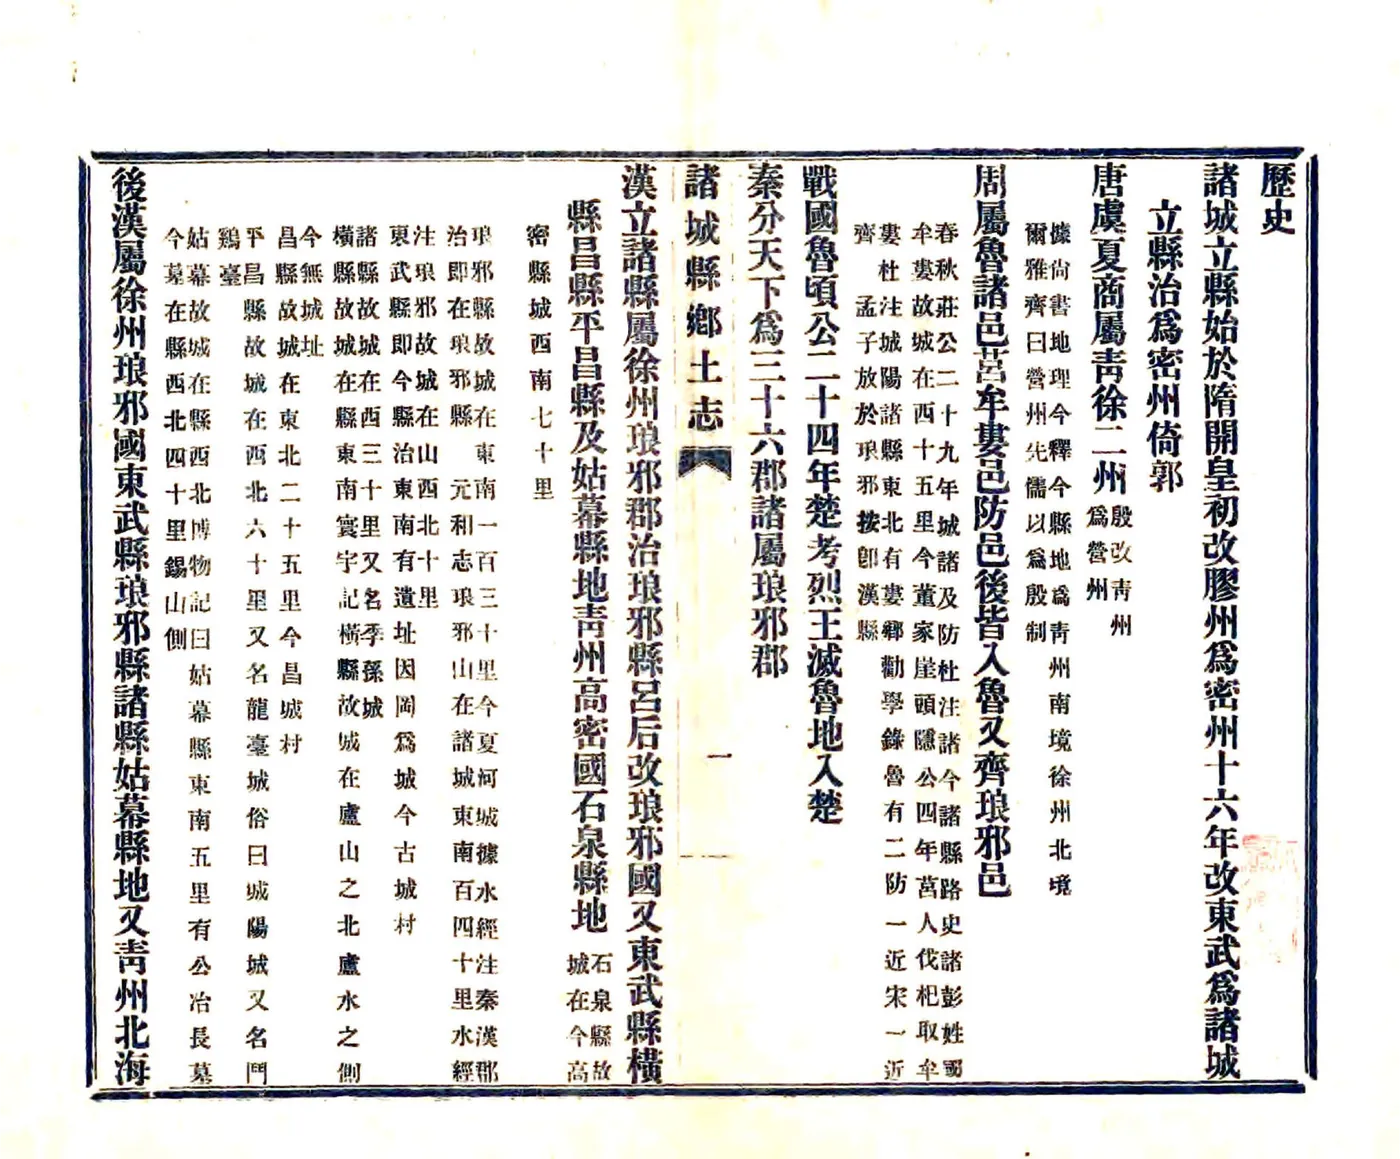 歷史
諸城立縣始於隋開皇初改膠州爲密州十六年改東武爲諸城
立縣治爲密州倚郭
唐虞夏商屬靑徐二州殷改靑州爲營州
據尙書地理今釋今縣地爲靑州南境徐州北境
爾雅齊曰營州先儒以爲殷制
周屬魯諸邑莒牟婁邑防邑後皆入魯又齊琅邪邑
春秋莊公二十九年城諸及防杜注諸今諸縣路史諸彭姓國
牟婁故城在西十五里今董家崖頭隱公四年莒人伐杞取牟
婁杜注城陽諸縣東北有婁鄉勸學錄魯有二防一近宋一近
齊 孟子放於琅邪按卽漢縣
戰國魯頃公二十四年楚考烈王滅魯地入楚
秦分天下爲三十六郡諸屬琅邪郡
諸城縣鄉土志 一
漢立諸縣屬徐州琅邪郡治琅邪縣呂后改琅邪國又東武縣橫
縣昌縣平昌縣及姑幕縣地靑州高密國石泉縣地石泉縣故城在今高
密縣城西南七十里
琅邪縣故城在東南一百三十里今夏河城據水經注秦漢郡
治即在琅邪縣 元和志琅邪山在諸城東南百四十里水經
注琅邪故城在山西北十里
東武縣即今縣治東南有遺址因岡爲城今古城村
諸縣故城在西三十里又名季孫城
橫縣故城在縣東南寰宇記橫縣故城在盧山之北盧水之側
今無城址
昌縣故城在東北二十五里今昌城村
平昌縣故城在西北六十里又名龍臺城俗曰城陽城又名鬥
鷄臺
姑幕故城在縣西北博物記曰姑幕縣東南五里有公冶長墓
今墓在縣西北四十里錫山側
後漢屬徐州琅邪國東武縣琅邪縣諸縣姑幕縣地又靑州北海